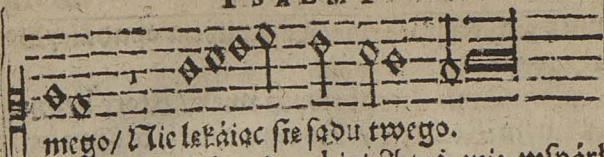 PSALM
mego/ Nie lękáiąc się sądu twego.